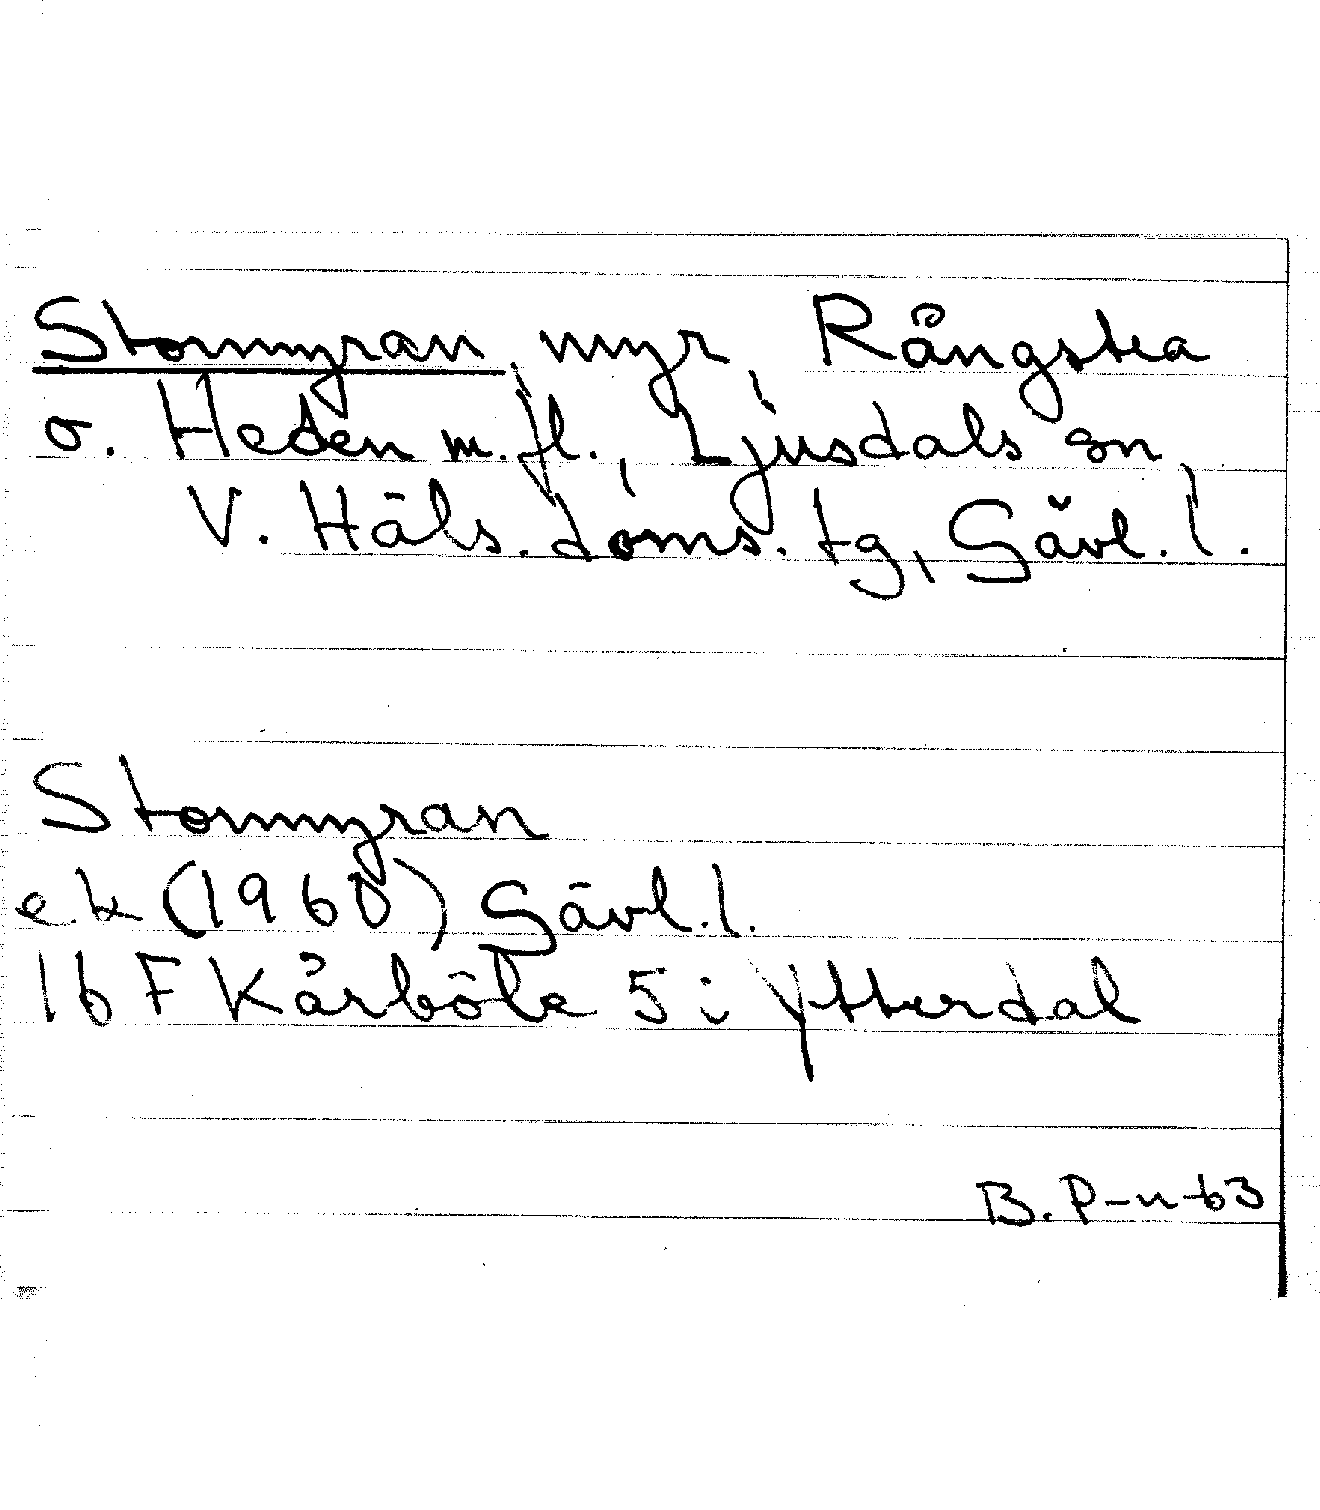 Stormyran, myr, Rångstea
o. Heden m.fl., Ljusdals sn,
V. Häls. doms. tg, Gävl. l.
Stormyran
e.k (1960) Gävl.l.
16 F Kårböle 5 i Ytterdal
B. P-n-63